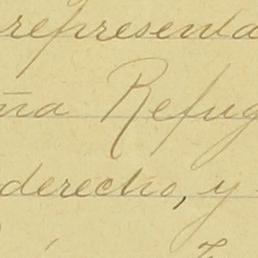 representa
ña Refug
derecho, y